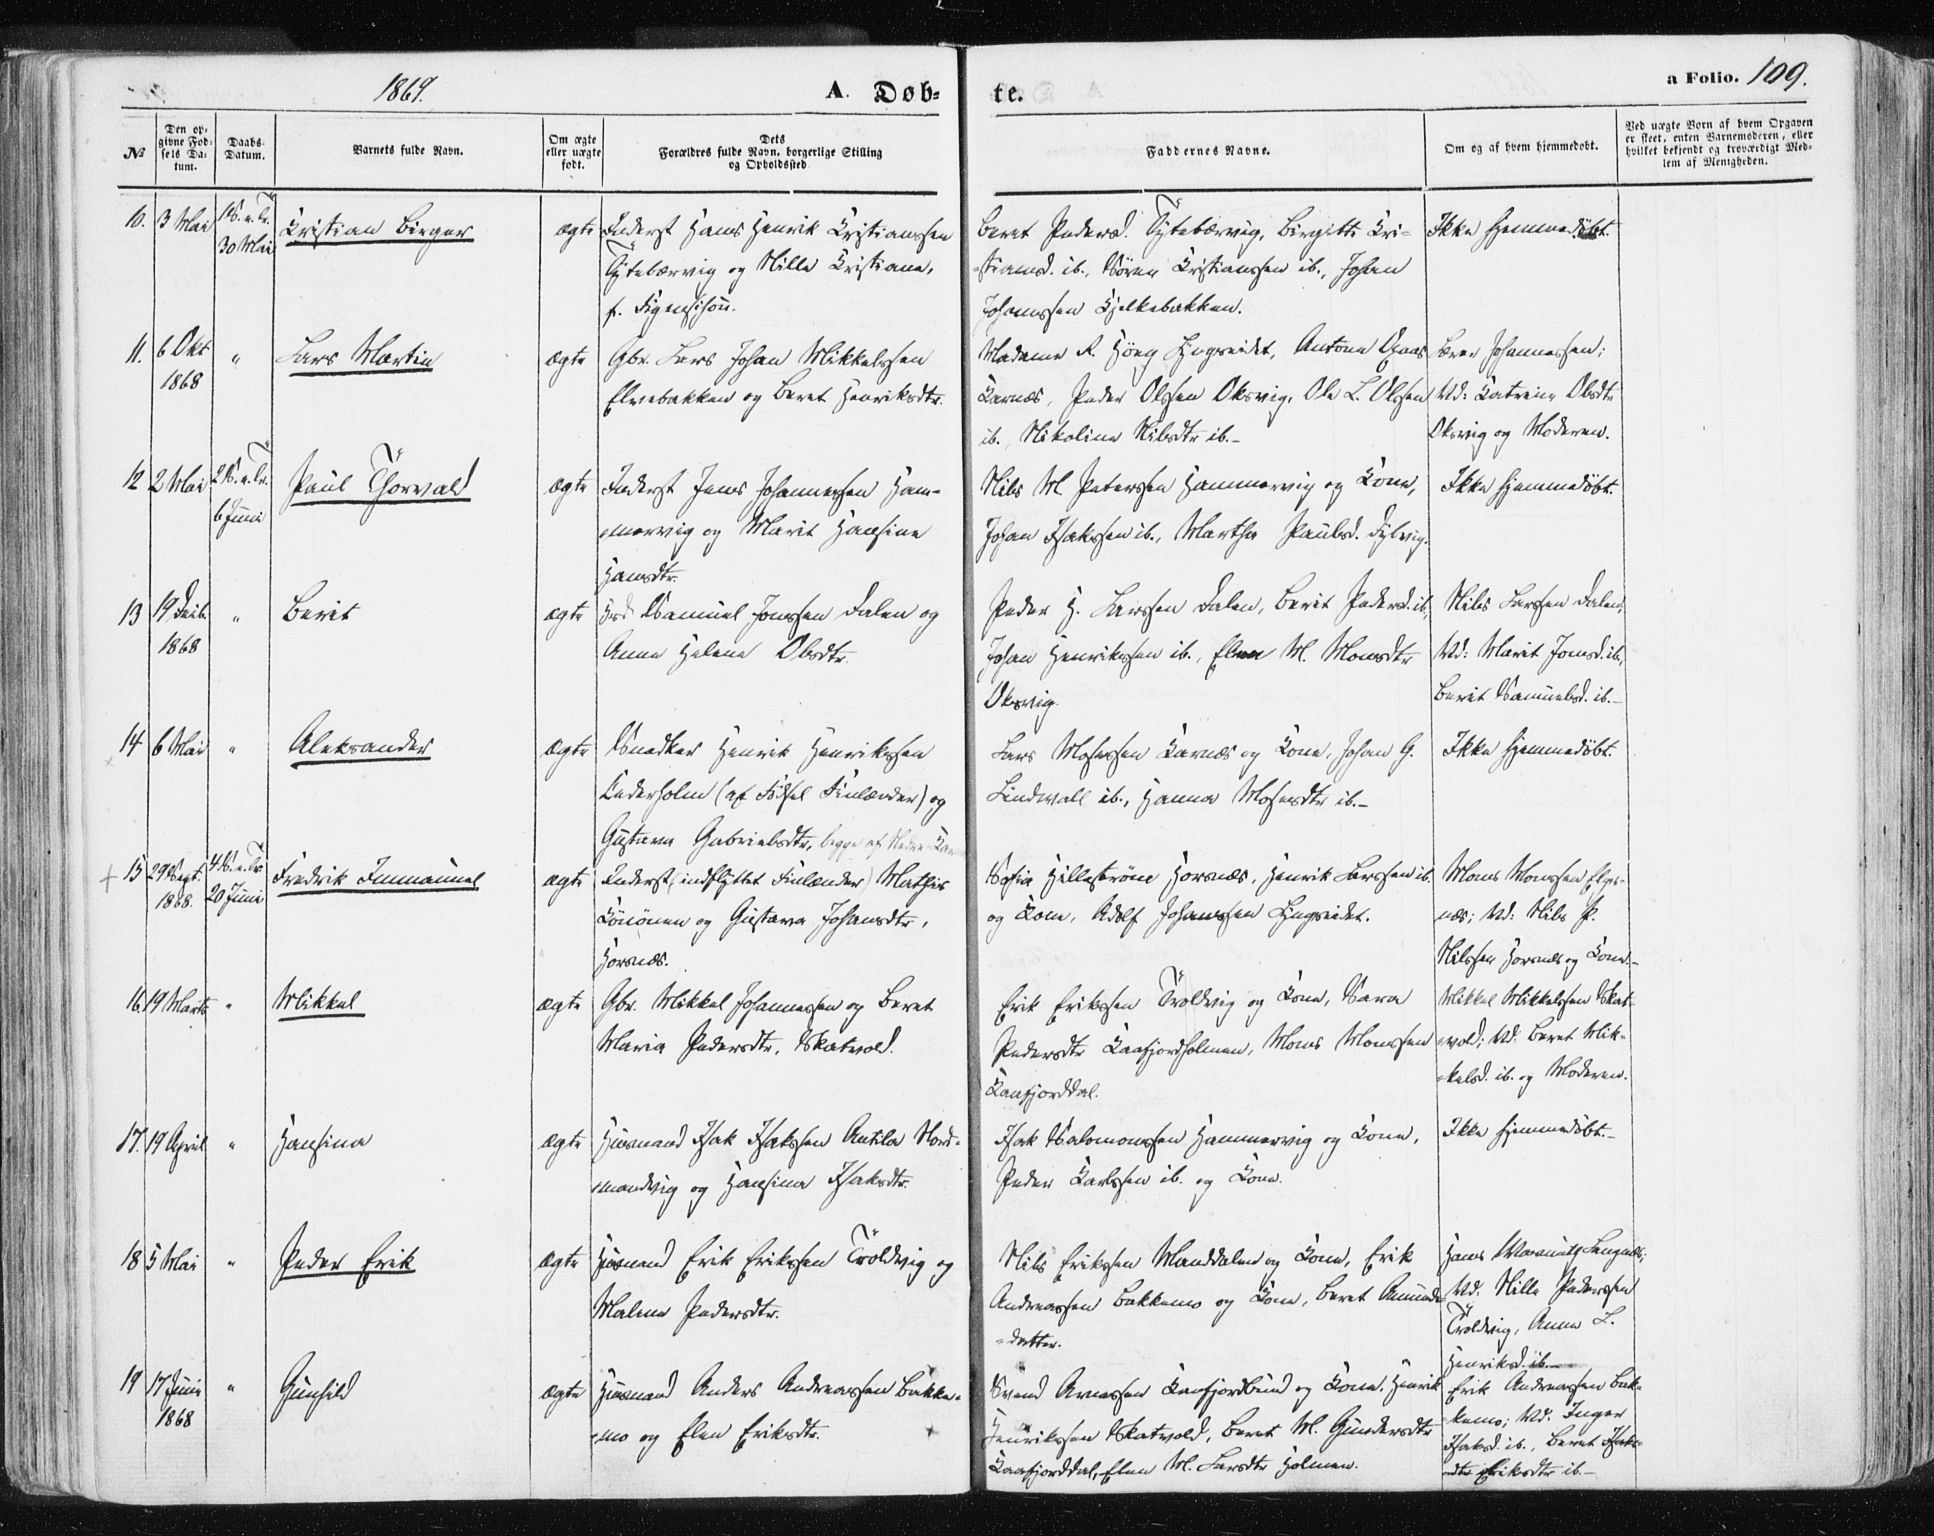 1869.
A. Døb-
te.
a Folio. 109.
No
Den op-
givne Fød-
sels Da-
tum.
Daabs-
Datum.
Barnets fulde Navn.
Om ægte
eller uægte
født.
Dets
Forældres fulde Navn, borgerlige Stilling
og Opholdssted.
Faddernes Navne.
Om og af hvem hjemmedøbt.
Ved uægte Børn af hvem Opgaven
er skeet, enten Barnemoderen, eller
hvilket bekjendt og troværdigt Med-
lem af Menigheden.
10. 3 Mai 1 S. e. Tr.
30 Mai
Kristian Birger
ægte
Inderst Hans Henrik Kristianssen
Tytebærvig og Nille Kristiane,
Beret Pedersd. Tytebærvig, Birgitte Kri-
-stiansd. ib., Sören Kristianssen ib., Johan
Johanssen Kjelkebakken.
Ikke hjemmedöbt.
11. 6 Okt
1868
"
Lars Martin
ægte
Gbr. Lars Johan Mikkelssen
Elvebakken og Beret Henriksdtr.
Madame A. Höeg Lyngseidet, Antone
Karnæs, Peder Olssen Oksvig, Ole L. Olssen
ib., Nikoline Nilsdtr ib.-
Lærer Johannessen;
Vd: Katrine Olsdtr
Oksvig og Moderen.
12 2 Mai 2 S. e. Tr.
6 Juni
Paul Thorvald
ægte
Inderst Jens Johannessen Ham-
-mervig og Marit Hansine
Hansdtr.
Nils M. Peterssen Hammervig og Kone,
Johan Isakssen ib., Martha Paulsd. Dybvig.
Ikke hjemmedöbt.
13 19 Decb.
1868
"
Berit
ægte
Samuel Jonssen Dalen og
Anne Helene Olsdtr.
Peder H. Larssen Dalen, Berit Pedersd. ib,
Johan Henrikssen ib., Elen M. Monsdtr
Oksvig.
Nils Larssen Dalen;
Vd: Marit Jonsd. ib,
Berit Samuelsd. ib.-
14 6 Mai "
Aleksander
ægte
Snedker Henrik Henrikssen
Cederholm (af Födsel Finlænder) og
Gustava Gabrielsdtr, begge af Nedre-Kar
Lars Mosessen Karnæs og Kone, Johan G.
Lindwall ib., Hanna Mosesdtr ib.-
Ikke hjemmedöbt.
15 29 Sept.
1868.
4 S. e. Tr.
20 Juni
Fredrik Immanuel
ægte
Inderst (indflyttet Finlænder) Mathis
Könönen og Gustava Johansdtr,
Horsnæs.
Sofia Hillaströne Horsnæs, Henrik Larssen ib.
og Kone, Adolf Johanssen Lyngseidet.
Mons Monssen Elgs-
næs; Vd: Nils P.
Nilssen Horsnæs og Kone.-
16. 19 Marts "
Mikkel
ægte
Gbr. Mikkel Johannessen og Beret
Maria Pedersdtr, Skatvold.
Erik Erikssen Troldvig og Kone, Sara
Pedersdtr Kaafjordholmen, Mons Monssen
Kaafjorddal.
Mikkel Mikkelssen Skat-
-vold; Vd: Beret Mik-
-kelsd. ib. og Moderen.
17. 19 April "
Hansina
ægte
Husmand Isak Isakssen Antila Nord-
-mandvig og Hansina Isaksdtr.
Isak Salomonssen Hammervig og Kone,
Peder Karlssen ib. og Kone.
Ikke hjemmedöbt.-
18 5 Mai "
Peder Erik
ægte
Husmand Erik Erikssen Troldvig og
Malene Pedersdtr.
Nils Erikssen Manddalen og Kone, Erik
Andreassen Bakkemo og Kone, Beret Amunds-
-datter.
Hans Langnæs;
Vd. Nille Pederssen
Troldvig, Anne L.
Henriksd. ib.-
19 17 Juni
1868
"
Gunhild
ægte
Husmand Anders Andreassen Bakke-
-mo og Elen Eriksdtr.
Svend Arnessen Kaafjordbund og Kone, Henrik
Henrikssen Skatvold, Beret M. Gundersdtr
Kaafjorddal, Elen M. Larsdtr Holmen.
Erik Andreassen Bak-
-kemo; Vd. Inger
Isaksd. ib., Beret Isaks-
-dtr Eriksdtr ib.-